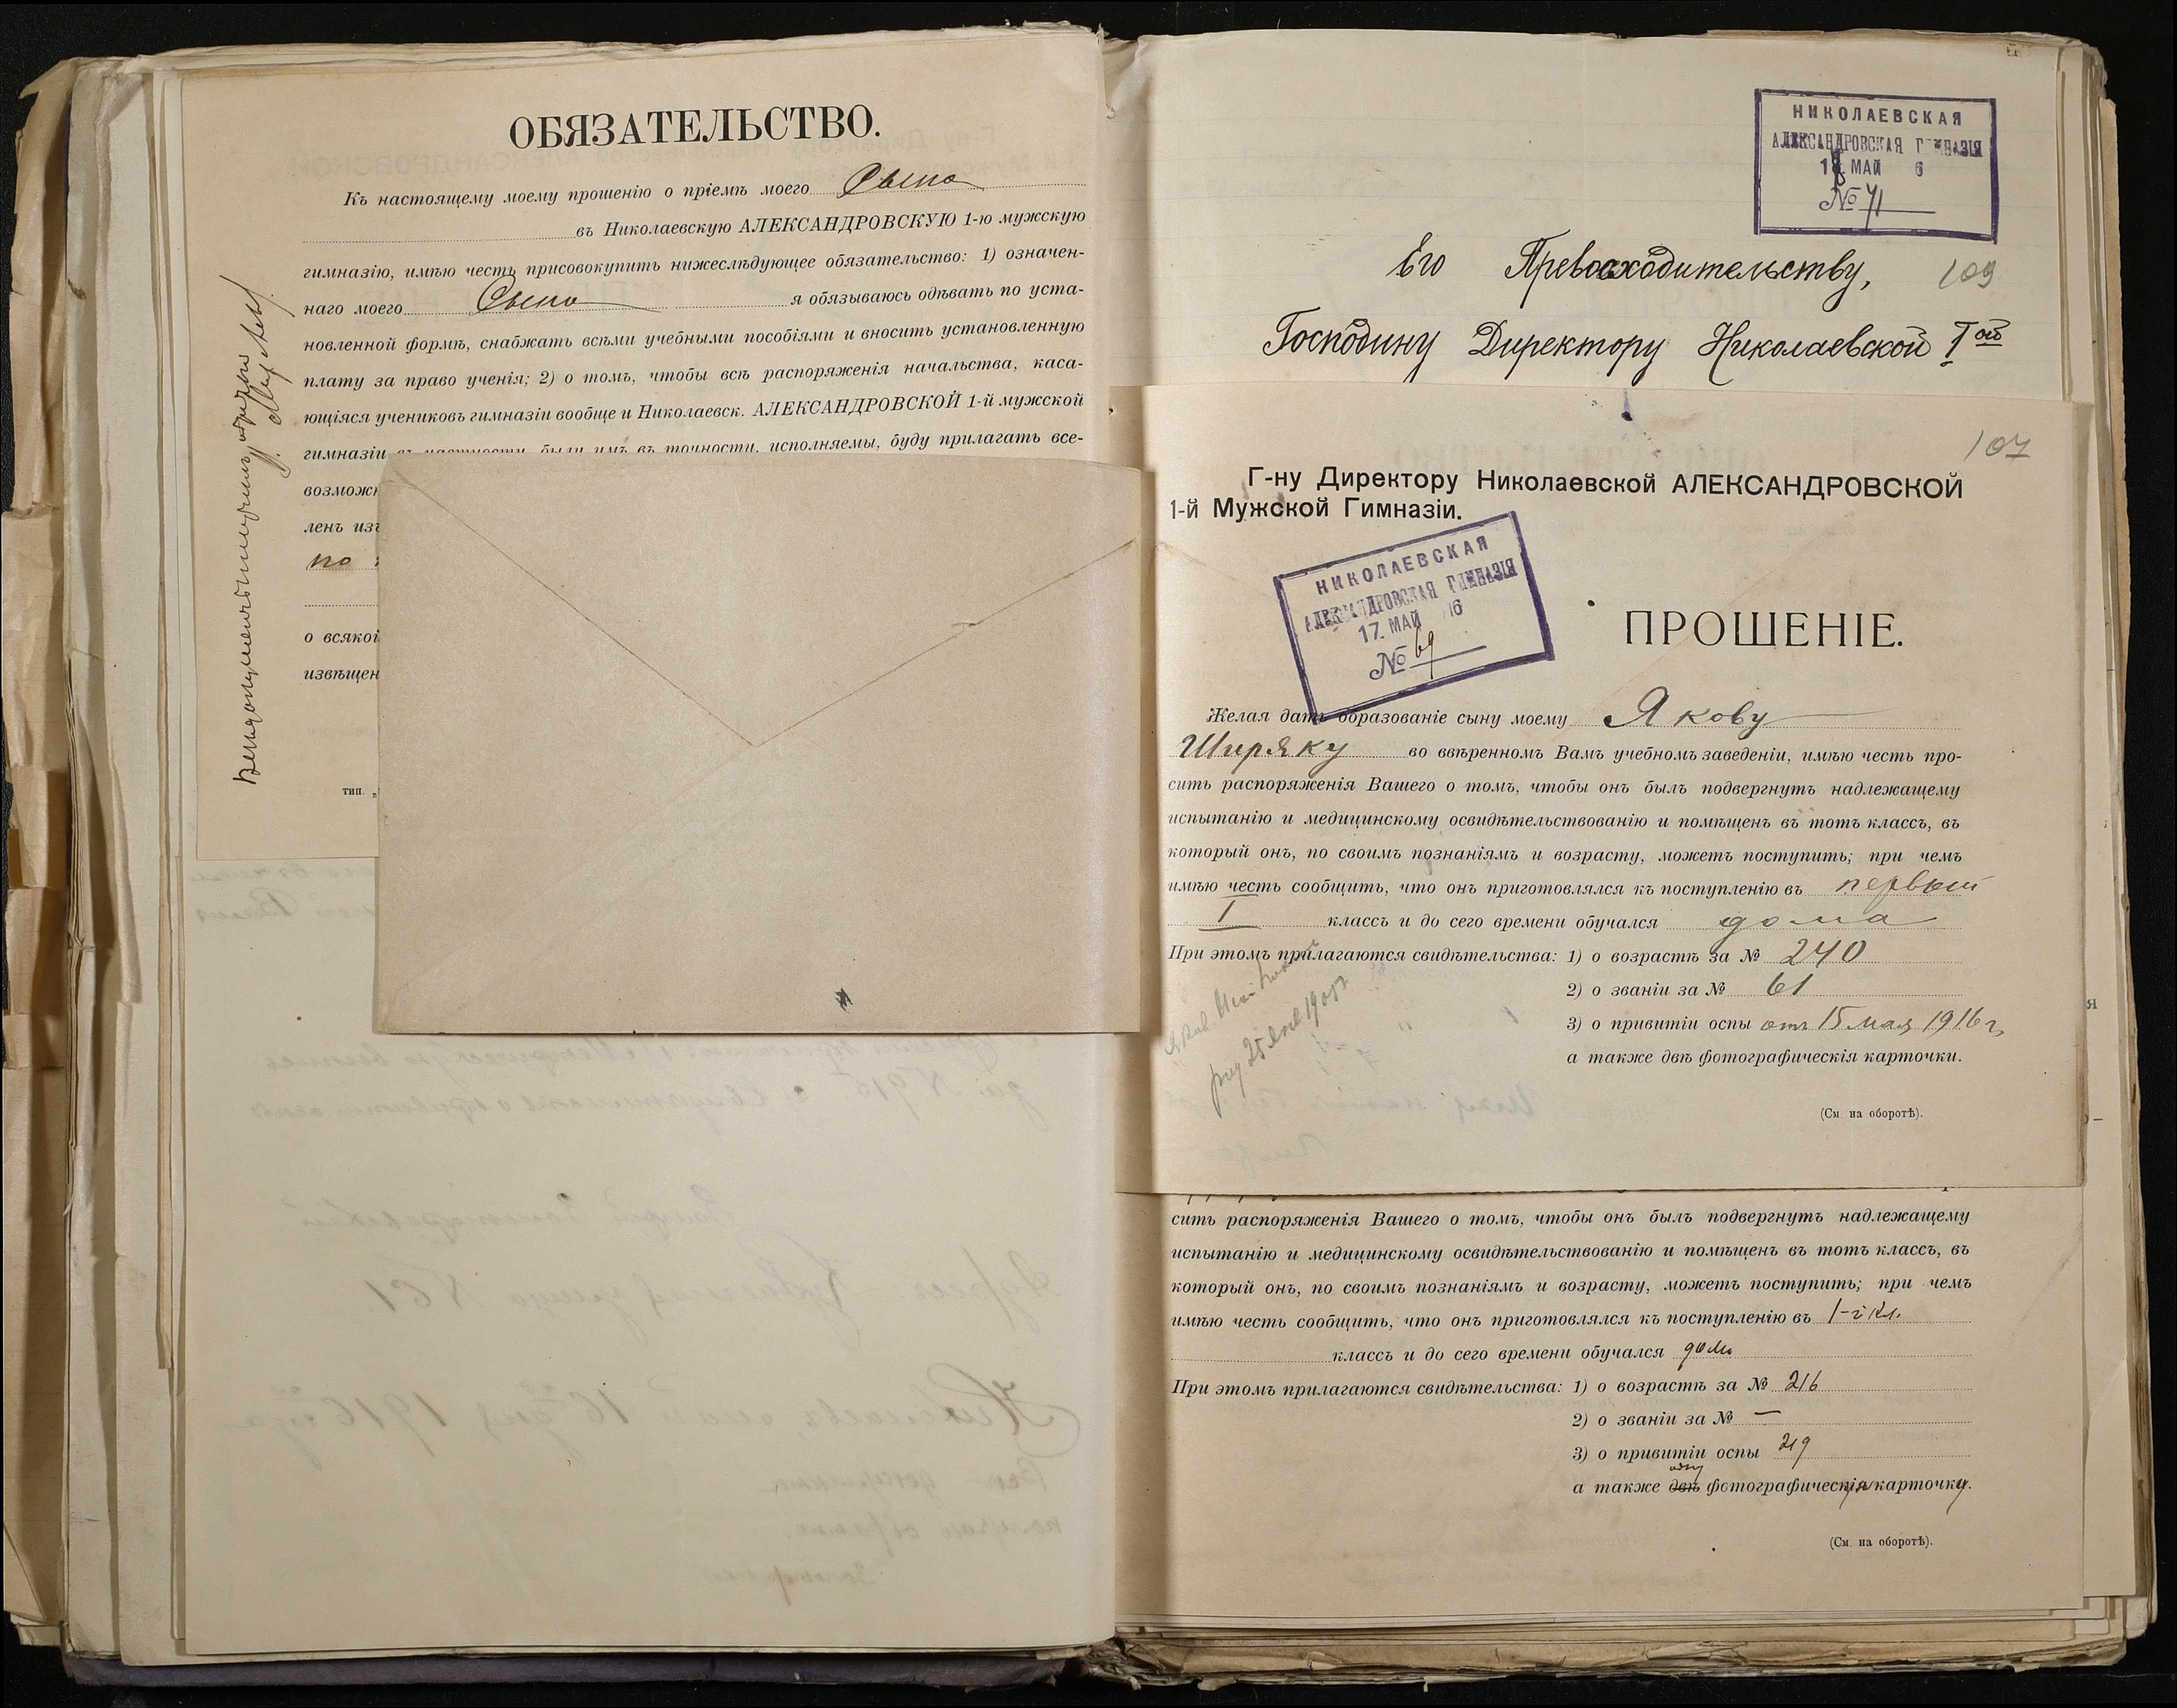 ОБЯЗАТЕЛЬСТВО.
Къ настоящему моему прошенію о пріемѣ моего Сына
въ Николаевскую АЛЕКСАНДРОВСКУЮ 1-ю мужскую
гимназію, имѣю честь присовокупить нижеслѣдующее обязательство: 1) означен-
наго моего Сына я обязываюсь одѣвать по уста-
новленной формѣ, снабжать всѣми учебными пособіями и вносить установленную
плату за право ученія; 2) о томъ, чтобы всѣ распоряженія начальства, каса-
ющіяся учениковъ гимназіи вообще и Николаевск. АЛЕКСАНДРОВСКОЙ 1-й мужской
гимназіи въ частности, были имъ въ точности, исполняемы, буду прилагать все-
возможн
ленъ изъ
по
о всякой
извѣщен
тип.
НИКОЛАЕВСКАЯ
АЛЕКСАНДРОВСКАЯ ГИМНАЗІЯ
18 МАЙ 6
№ 71
109
Его Превосходительству,
Господину Директору Николаевской I ой
107
Г-ну Директору Николаевской АЛЕКСАНДРОВСКОЙ
1-й Мужской Гимназіи.
НИКОЛАЕВСКАЯ
АЛЕКСАНДРОВСКАЯ ГИМНАЗІЯ
17. МАЙ 16
№ 69
ПРОШЕНІЕ.
Желая дать образованіе сыну моему Якову
Ширяку во ввѣренномъ Вамъ учебномъ заведеніи, имѣю честь про-
сить распоряженія Вашего о томъ, чтобы онъ былъ подвергнутъ надлежащему
испытанію и медицинскому освидѣтельствованію и помѣщенъ въ тотъ классъ, въ
который онъ, по своимъ познаніямъ и возрасту, можетъ поступить; при чемъ
имѣю честь сообщить, что онъ приготовлялся къ поступленію въ первый
I классъ и до сего времени обучался дома
При этомъ прилагаются свидѣтельства: 1) о возрастѣ за № 240
2) о званіи за № 61
3) о привитіи оспы отъ 15 мая 1916 г,
а также двѣ фотографическія карточки.
(См. на оборотѣ).
сить распоряженія Вашего о томъ, чтобы онъ былъ подвергнутъ надлежащему
испытанію и медицинскому освидѣтельствованію и помѣщенъ въ тотъ классъ, въ
который онъ, по своимъ познаніямъ и возрасту, можетъ поступить; при чемъ
имѣю честь сообщить, что онъ приготовлялся къ поступленію въ 1-й кл.
классъ и до сего времени обучался дома
При этомъ прилагаются свидѣтельства: 1) о возрастѣ за № 216
2) о званіи за № —
3) о привитіи оспы 219
одну
а также двѣ фотографическую карточку.
(См. на оборотѣ).